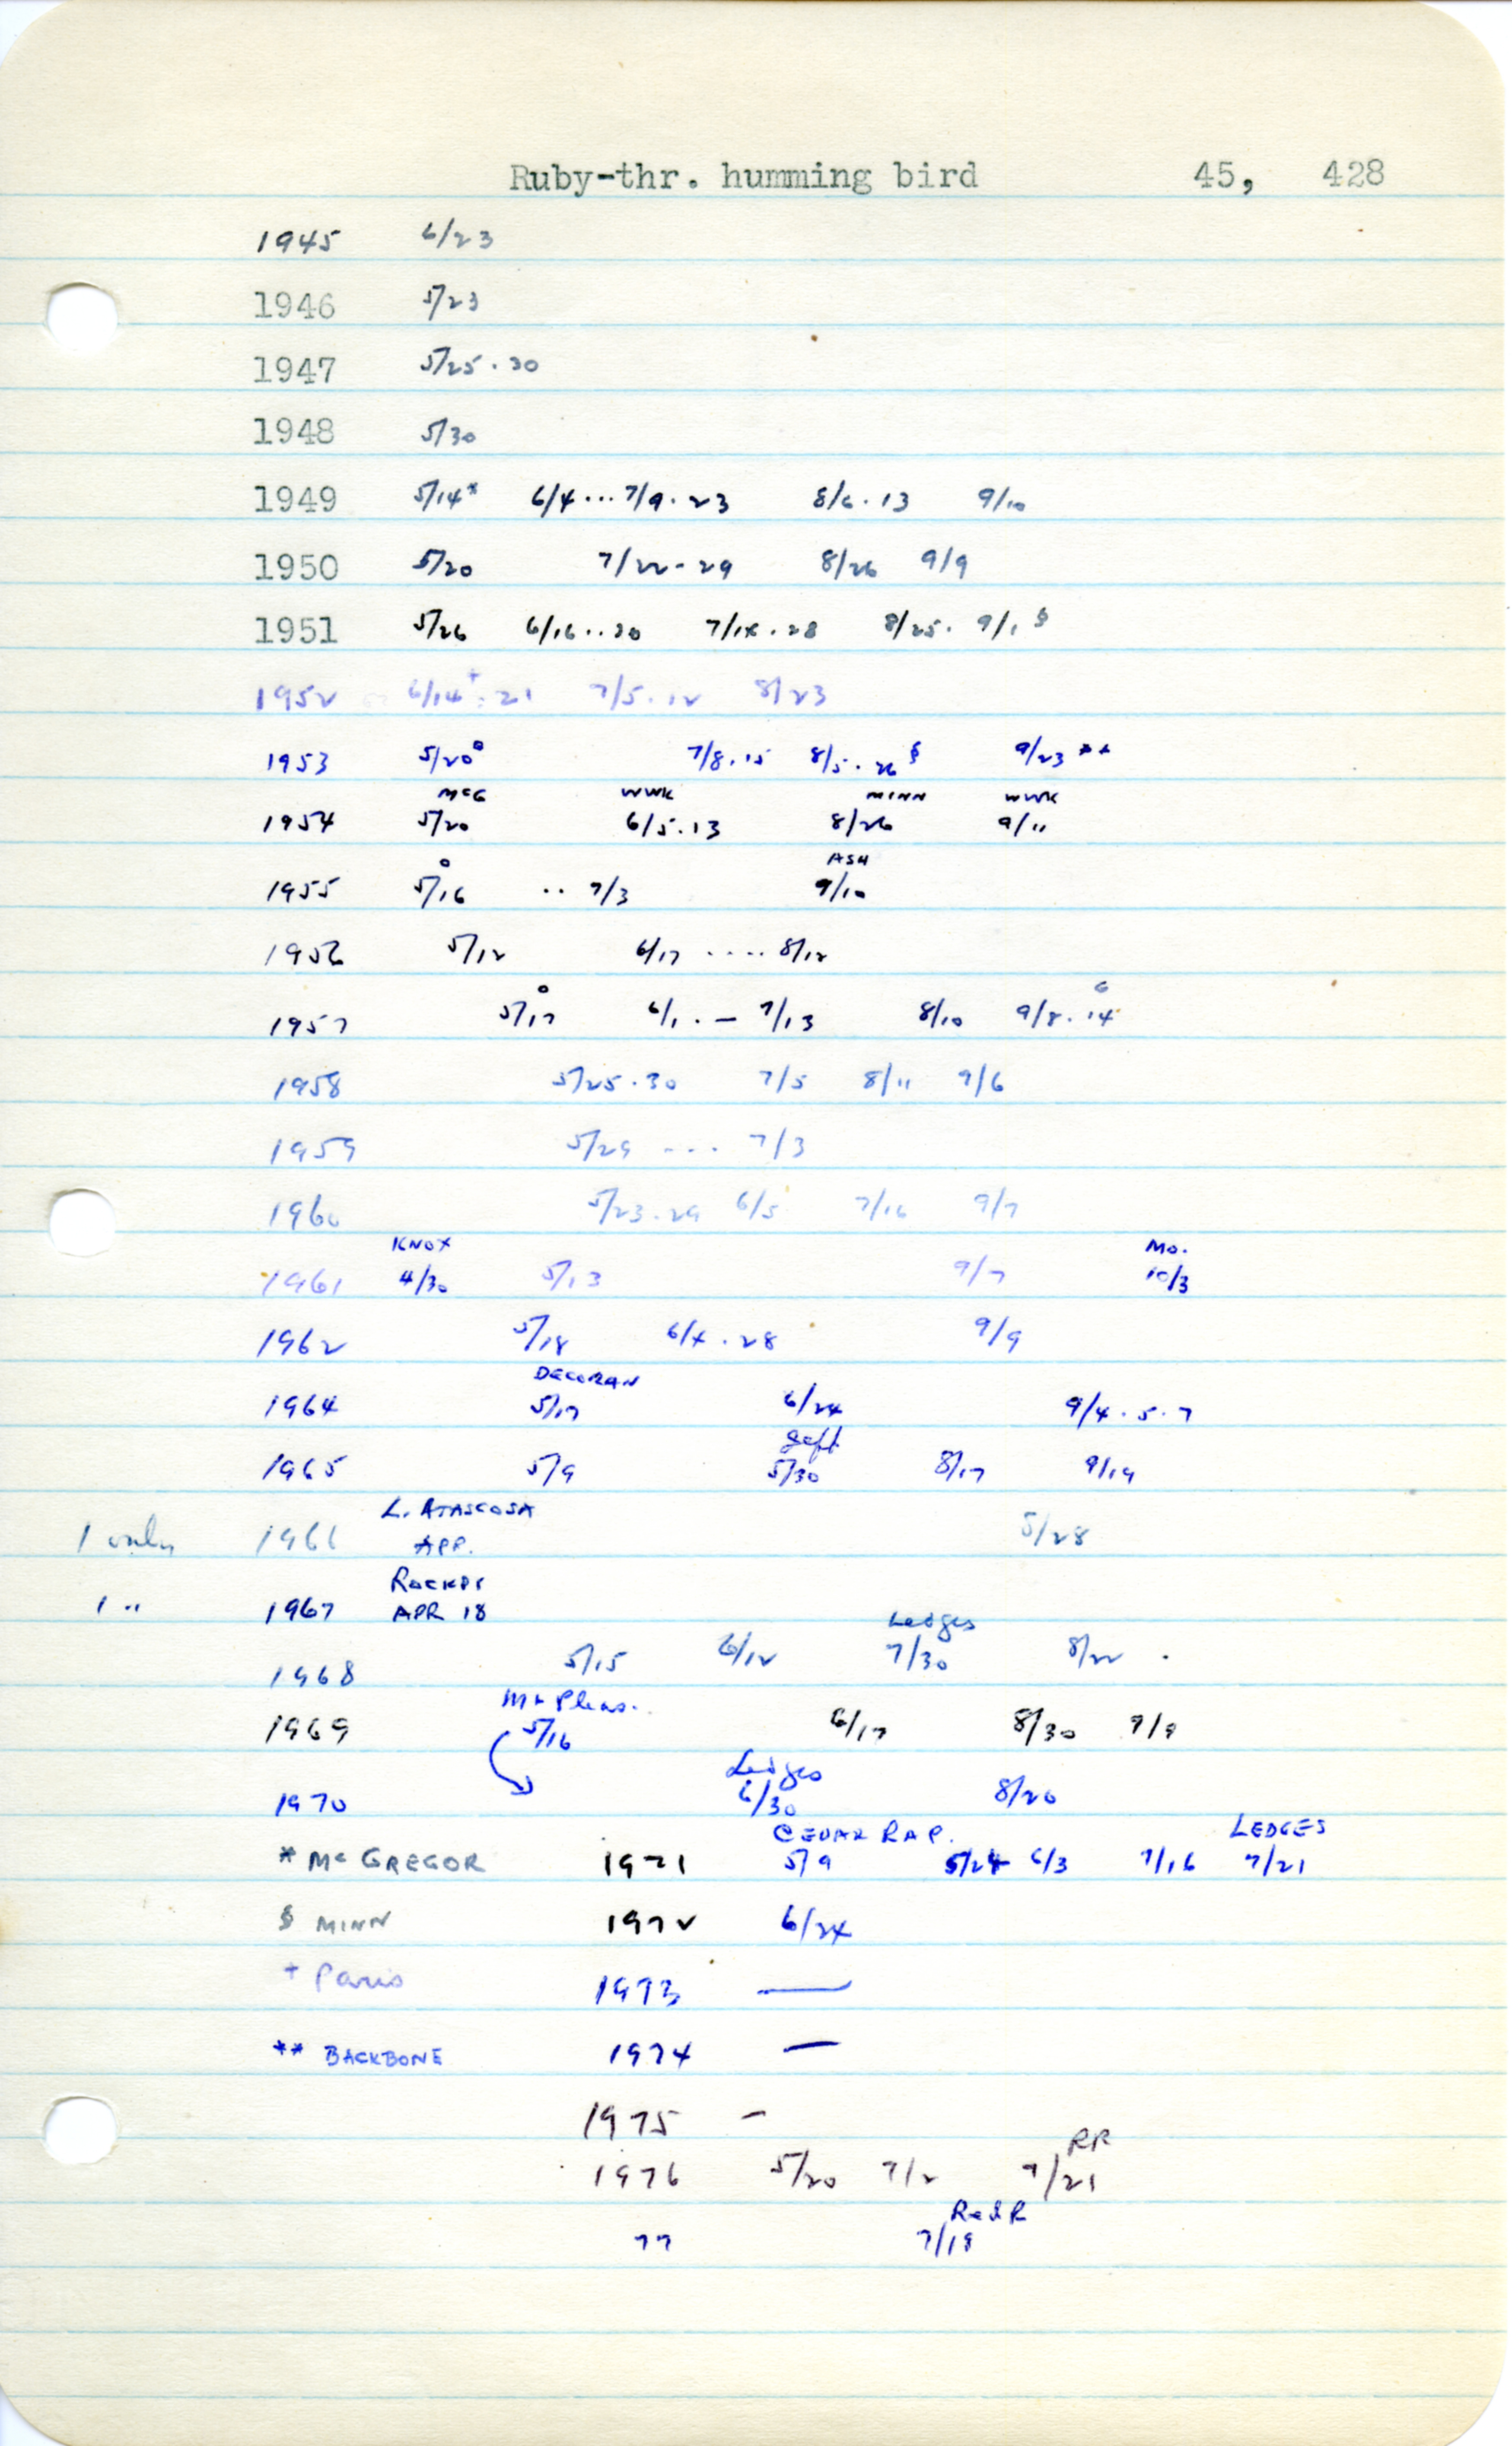 Ruby-thr. humming bird 45, 428
1945 6/23
1946 5/23
1947 5/25 . 30
1948 5/30
1949 5/14* 6/4 ... 7/9 . 23 8/6 . 13 9/10
1950 5/20 7/22 - 29 8/26 9/9
1951 5/26 6/16 .. 30 7/14 . 28 8/25 . 9/1 §
1952 6/14+ . 21 7/5 . 12 8/23
1953 5/20° 7/8 . 15 8/5 . 26 § 9/23 **
McG WWK MINN WWK
1954 5/20 6/5 . 13 8/26 9/11
° ASH
1955 5/16 .. 7/3 9/10
1956 5/12 6/17 .... 8/12
°
1957 5/17 6/1 . — 7/13 8/10 9/8 . 14
1958 5/25 . 30 7/5 8/11 9/6
1959 5/29 .... 7/3
1960 5/23 . 29 6/5 7/16 9/7
KNOX MO.
1961 4/30 5/13 9/7 10/3
1962 5/18 6/4 . 28 9/9
DECORAH
1964 5/17 6/24 9/4 . 5 . 7
Jeff.
1965 5/9 5/30 8/17 9/19
L. ATASCOSA
1 only 1966 APR. 5/28
ROCKPT
1 " 1967 APR 18
Ledges
1968 5/15 6/12 7/30 8/22 .
Mt Pleas.
1969 5/16 6/17 8/30 9/9
Ledges
1970 6/30 8/20
CEDAR RAP. LEDGES
* McGREGOR 1971 5/9 5/24 6/3 7/16 7/21
§ MINN 1972 6/24
+ Paris 1973 —
** BACKBONE 1974 —
1975 —
RR
1976 5/20 7/2 9/21
Red R
77 7/19